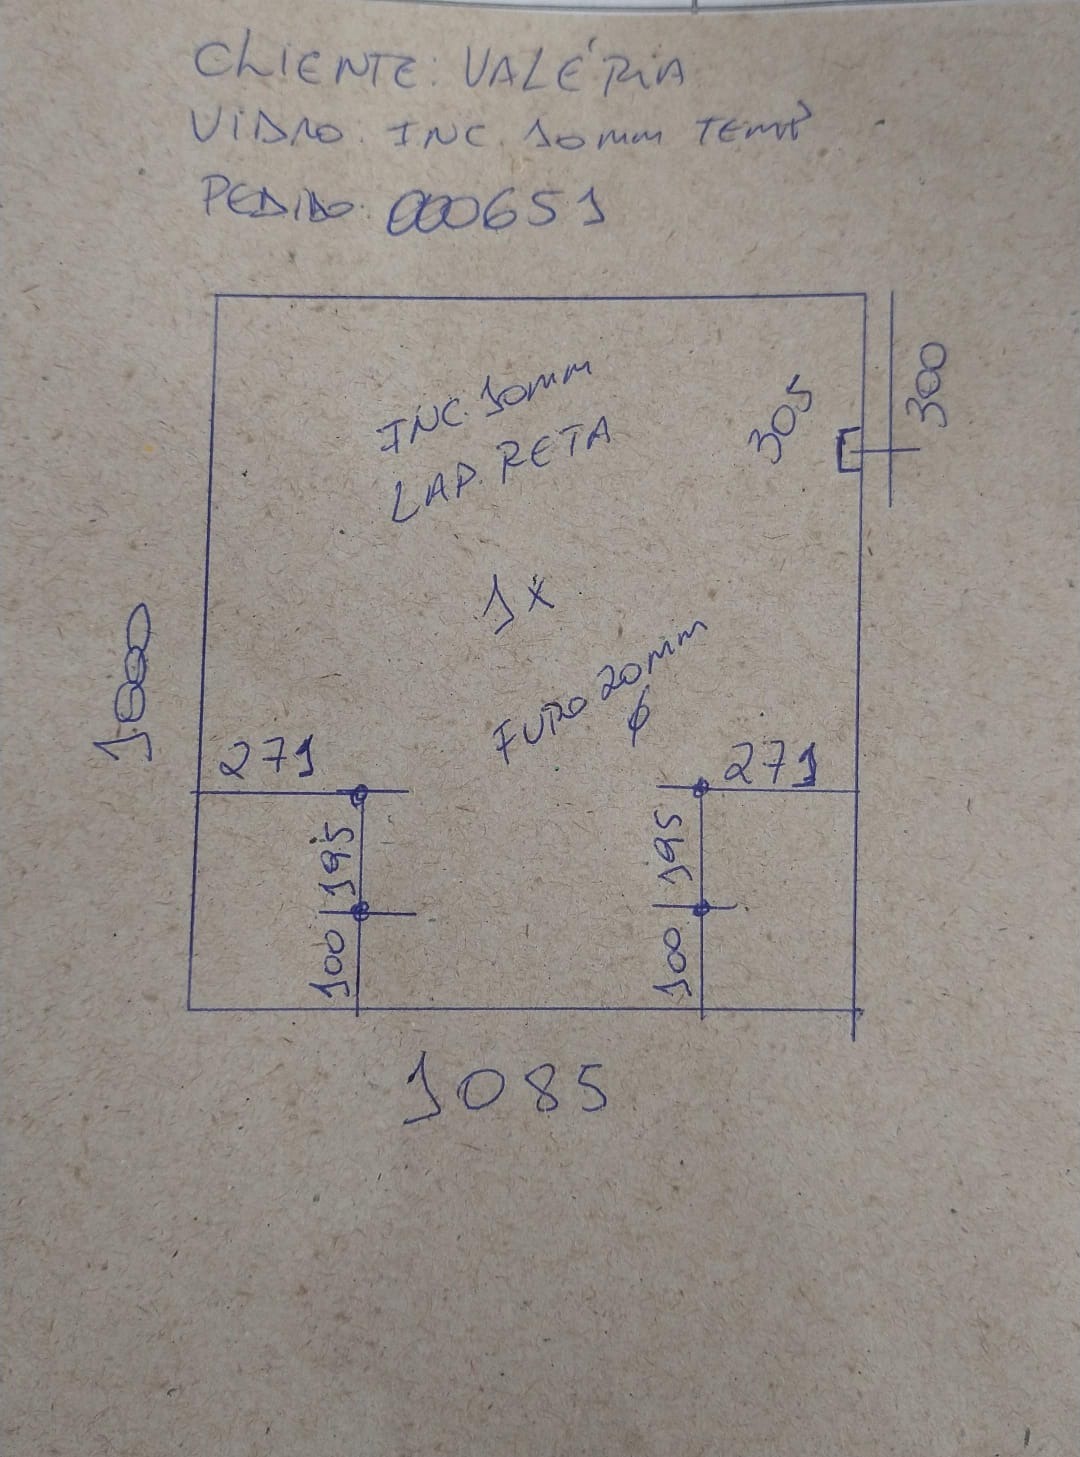 CLIENTE: VALÉRIA
VIDRO: INC. 10mm TEMP
PEDIDO: 000651
300
305
INC. 10mm
LAP. RETA
1x
1000
FURO 20mm
ϕ
271
271
195
195
100
100
1085